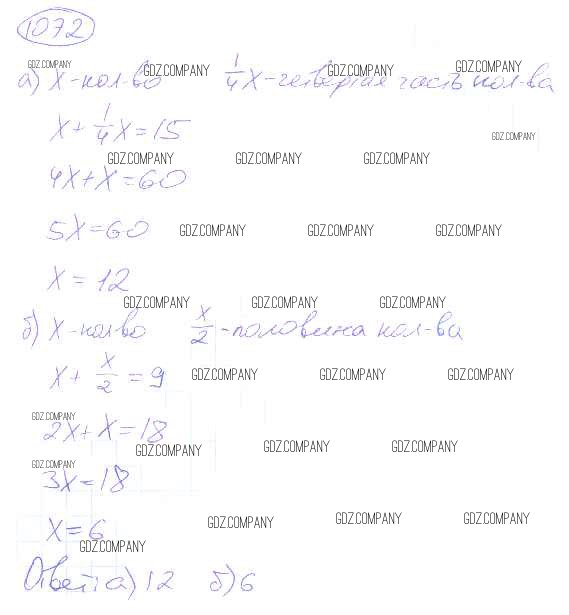 1072
GDZ.COMPANY GDZ.COMPANY GDZ.COMPANY GDZ.COMPANY
а) x - кол-во 1/4x - четвертая часть кол-ва
x + 1/4x = 15
GDZ.COMPANY
GDZ.COMPANY GDZ.COMPANY GDZ.COMPANY
4x + x = 60
5x = 60 GDZ.COMPANY GDZ.COMPANY GDZ.COMPANY
x = 12
GDZ.COMPANY GDZ.COMPANY GDZ.COMPANY
б) x - кол-во x/2 - половина кол-ва
x + x/2 = 9 GDZ.COMPANY GDZ.COMPANY GDZ.COMPANY
GDZ.COMPANY
2x + x = 18
GDZ.COMPANY GDZ.COMPANY GDZ.COMPANY
GDZ.COMPANY
3x = 18
x = 6 GDZ.COMPANY GDZ.COMPANY GDZ.COMPANY
GDZ.COMPANY
Ответ: а) 12 б) 6